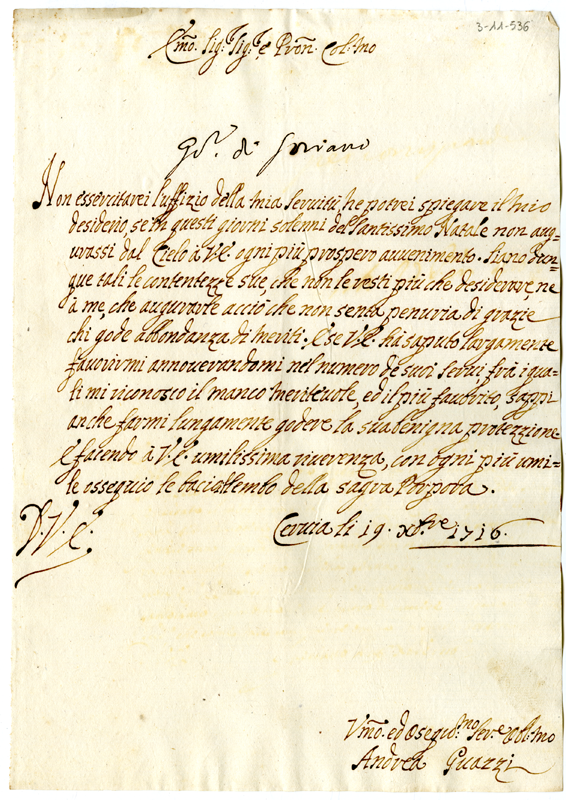 3-11-536
E.mo Sig.r Sig.r e Pron. Col.mo
di Soriano
Non essercitarei l'uffizio della mia servitù, ne potrei spiegare il mio
desiderio, se in questi giorni solenni del Santissimo Natale non aug=
urassi dal Cielo à V.E. ogni più prospero avvenimento. Siano dun=
que tali le contentezze sue, che non le resti più che desiderare, ne
à me, che augurarle acciò che non senta penuria di grazie
chi gode abbondanza di meriti. E se V.E. hà saputo largamente
favorirmi annoverandomi nel numero de suoi servi frà i qua=
li mi riconosco il manco meritevole, ed il più favorito, sappi
anche farmi lungamente godere la sua benigna protezzione
E facendo à V.E. umilissima riverenza, con ogni più umi=
le ossequio le bacio il lembo della sagra Porpora.
D. V. E.
Cervia li 19. Xbre 1716.
Vmo. ed Ossequ.mo Ser.e Obl.mo
Andrea Guazzi